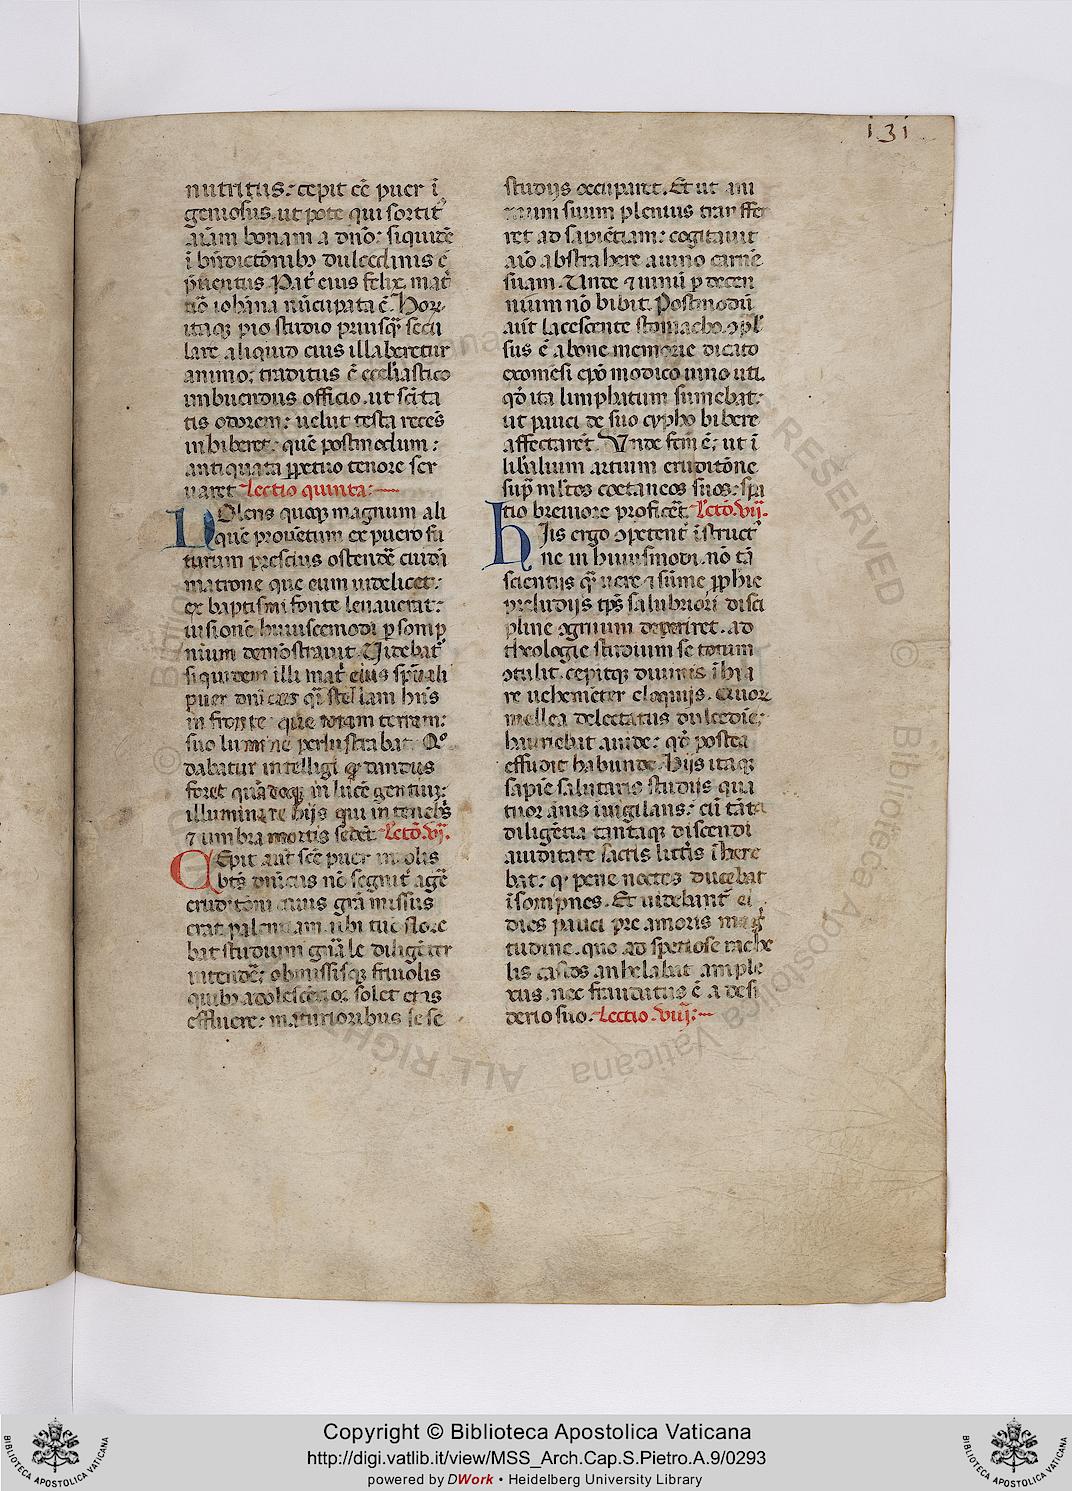 131
nutritus: cepit cē puer ī
geniosus, ut pote qui sortit᷑
aīam bonam a dño: siquidē
ī bn̄dictōnibꝫ dulcedinis ē
p̄uentus. Pat᷑ eius felix mat᷑
uō iohāna nūcupata ē. Hoꝝ
itaqꝫ pio studio priusq̄ʒ secu
lare aliquid eius illaberetur
animo: traditus ē ecclīastico
imbuendus officio, ut sc̄ita
tis odorem: uelut testa recēs
inbiberet: quē postmodum:
antiquata ꝑpetuo tenore ser
uaret. Lectio quinta:
Uolens quoqꝫ magnum ali
quē prouētum ex puero fu
turum prescius ostendē cuidā
matrone que eum uidelicet:
ex baptismi fonte leuauerat:
uisionē huiuscemodi ꝑ somp
nium demōstrauit. Uidebat᷑
siquidem illi mat᷑ eius spūali
puer dn̄icus q̄i stellam hn̄s
in fronte: que totam terram:
suo lumine perlustrabat. Qͦ
dabatur intelligi ꝙ dandus
foret quādoqꝫ in lucē gentiuꝫ:
illuminare hijs qui in tenebˢ
⁊ umbra mortis sedēt. Lectō. vj.
Cepit aut̄ sc̄e puer indolis
bt̄s dn̄icus nō segnit᷑ agē
eruditōni cuius grā missus
erat palentiam. ubi tūc flore
bat studium gn̄ale diligēter
intendē: obmissisqꝫ friuolis
quibꝫ adolescētioꝝ solet etas
effluere: maturioribus sese
studijs occuparet. Et ut ani
mum suum plenius transfer
ret ad sapiētiam: cogitauit
aīo abstrahere a uino carnē
suam. Unde ⁊ uinū ꝑ decen
nium nō bibit. Postmodū
aut̄ lacescente stomacho ꝯpl᷑
sus ē a bone memorie didaco
exomēsi epō modico uino uti.
qd̄ ita limphatum sumebat:
ut pauci de suo cypho bibere
affectarēt. Unde fc̄m ē: ut ī
lib̄alium artium eruditōne
sup̄ ml̄tos coetaneos suos: spa
tio breuiore proficēt. Lectō. vij.
Hijs ergo ꝯpetent᷑ īstruct᷑
ne in huiusmodi. nō tā
scientijs q̄ʒ uere ⁊ sūme ꝓphie
preludijs tp̄s salubriori disci
pline ꝯgruum deperiret. ad
theologie studium se totum
ꝯtulit. cepitqꝫ diuinis īhia
re uehemēter eloquijs. Quoꝝ
mellea delectatus dulcedīe;
hauriebat auide: qd̄ postea
effudit habunde. Hijs itaqꝫ
sapīe salutaris studijs qua
tuor annis inuigilans: cū tāta
diligētia tantaqꝫ discendi
auiditate sacris litt᷑is īhere
bat: ꝙ pene noctes ducebat
īsompnes. Et uidebant᷑ ei
dies pauci pre amoris mag
tudine. quo ad speciose rache
lis castos anhelabat ample
xus. nec fraudatus ē a desi
derio suo. Lectio. viij:
Copyright © Biblioteca Apostolica Vaticana
http://digi.vatlib.it/view/MSS_Arch.Cap.S.Pietro.A.9/0293
powered by DWork • Heidelberg University Library
BIBLIOTECA APOSTOLICA VATICANA
BIBLIOTECA APOSTOLICA VATICANA